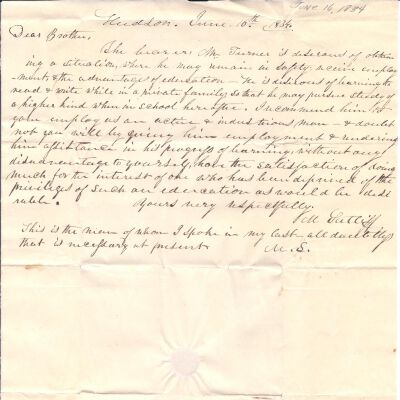 June 16, 1834
Hudson. June 10th 1834.
Dear Brother,
The bearer Mr Turner is desirous of obtain
ing a situation, where he may remain in safety, receive employ
ment, & the advantages of education — He is desirous of learning to
read & write while in a private family, so that he may pursue study of
a higher kind when in school hereafter. I recommend him to
your employ as an active & industrious man — & doubt
not you will by giving him employment & rendering
him assistance in his progress of learning, without any
disadvantage to yourself, have the satisfaction of doing
much for the interest of one who has been deprived of the
privileges of such an education as would be desi
rable.
Yours very respectfully.
M
This is the man of whom I spoke in my last
that is necessary at present.
M. S.